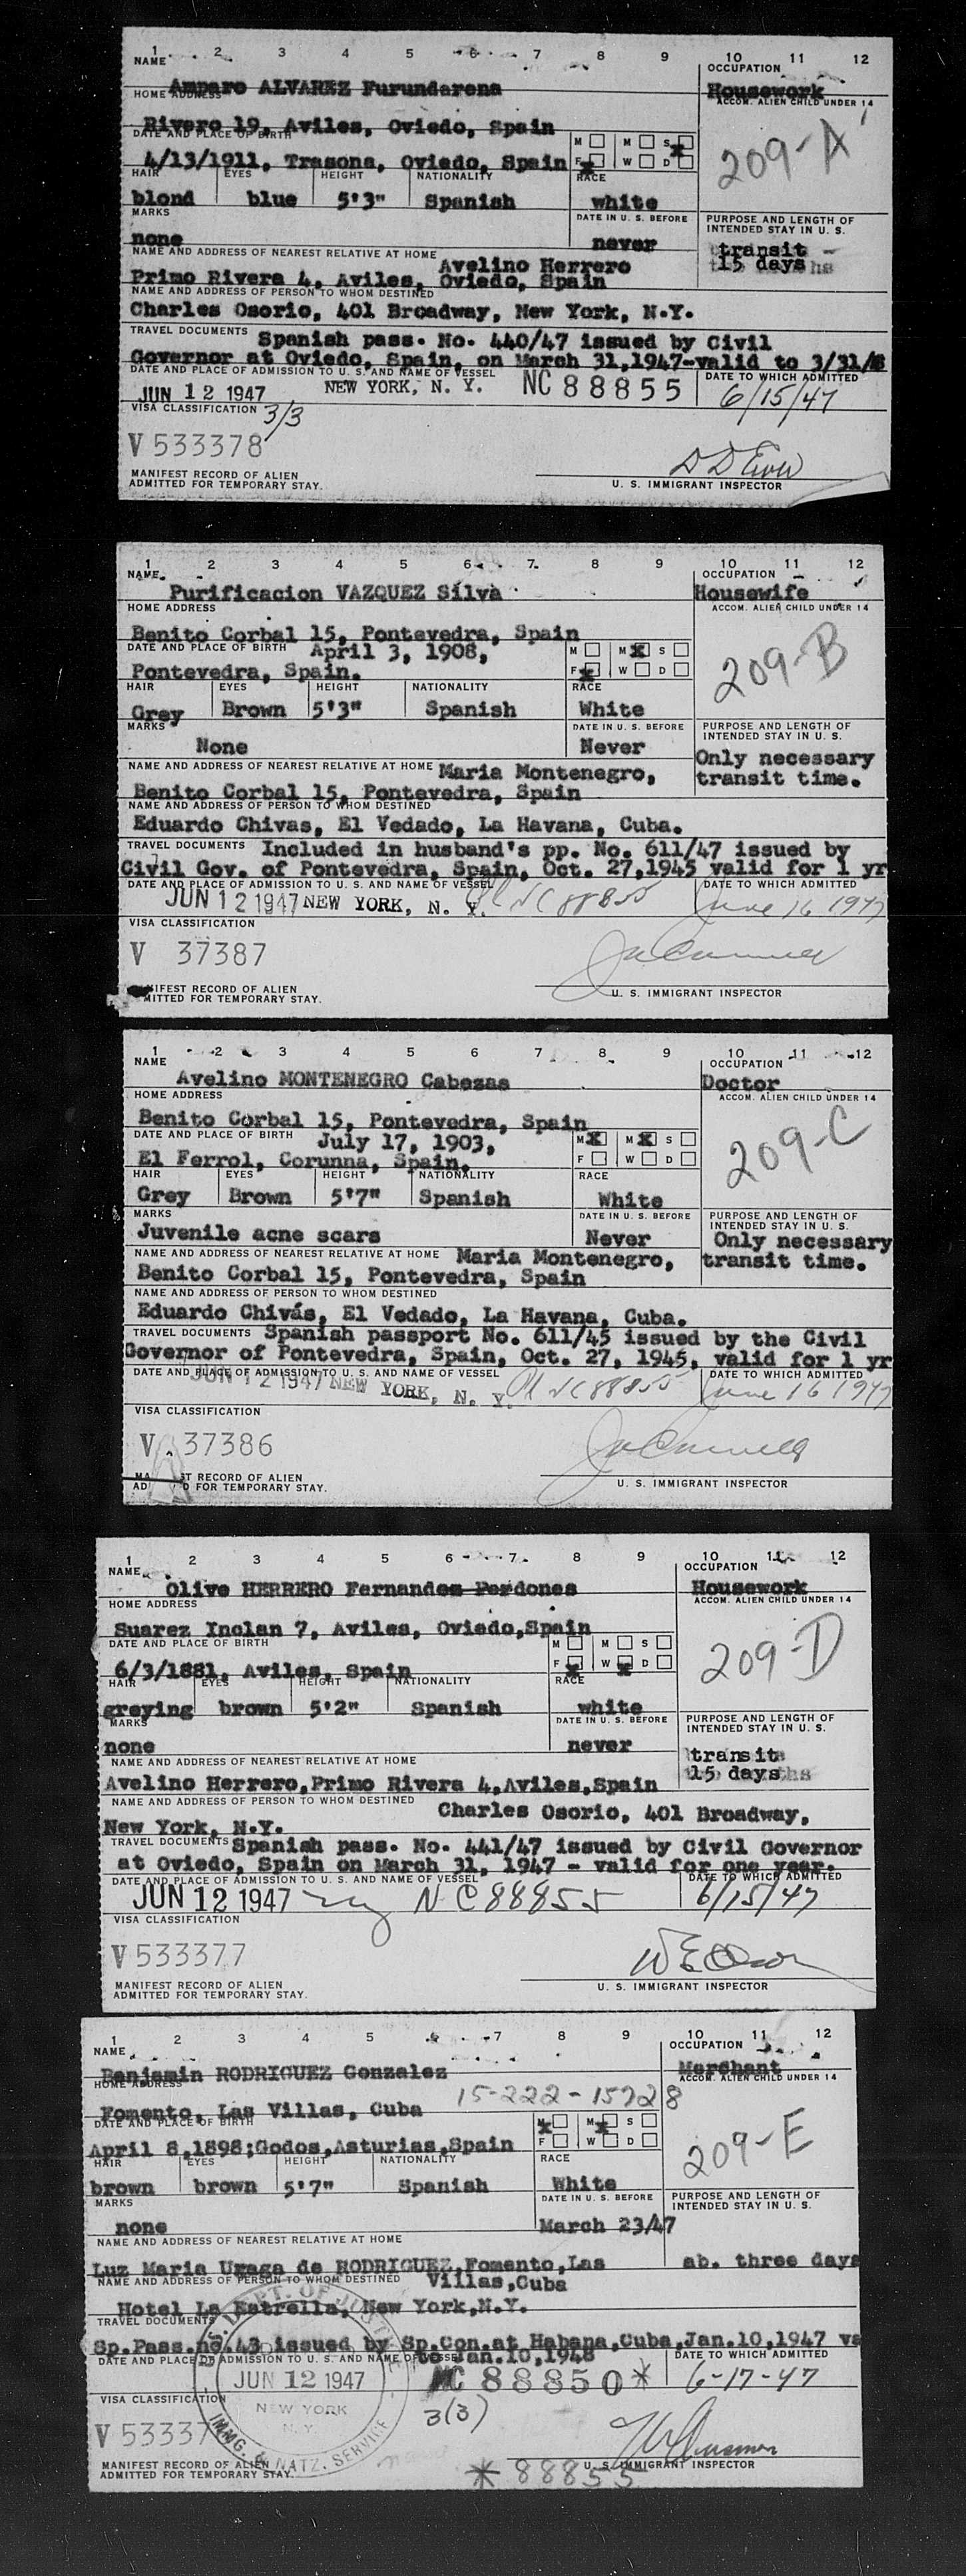 1 2 3 4 5 6 7 8 9 10 11 12
NAME OCCUPATION
Amparo ALVAREZ Furundarena Housework
HOME ADDRESS ACCOM. ALIEN CHILD UNDER 14
Rivero 19, Aviles, Oviedo, Spain 209-A
DATE AND PLACE OF BIRTH M M S
4/13/1911, Trasona, Oviedo, Spain F W D
HAIR EYES HEIGHT NATIONALITY RACE
blond blue 5'3" Spanish white
MARKS DATE IN U. S. BEFORE PURPOSE AND LENGTH OF INTENDED STAY IN U. S.
none never transit
15 days
NAME AND ADDRESS OF NEAREST RELATIVE AT HOME Avelino Herrero
Primo Rivera 4, Aviles, Oviedo, Spain
NAME AND ADDRESS OF PERSON TO WHOM DESTINED
Charles Osorio, 401 Broadway, New York, N.Y.
TRAVEL DOCUMENTS Spanish pass. No. 440/47 issued by Civil
Governor at Oviedo, Spain, on March 31,1947-valid to 3/31/8
DATE AND PLACE OF ADMISSION TO U. S. AND NAME OF VESSEL DATE TO WHICH ADMITTED
JUN 12 1947 NEW YORK, N. Y. NC 88855 6/15/47
VISA CLASSIFICATION 3/3
V 533378
MANIFEST RECORD OF ALIEN
ADMITTED FOR TEMPORARY STAY. U. S. IMMIGRANT INSPECTOR
1 2 3 4 5 6 7 8 9 10 11 12
NAME OCCUPATION
Purificacion VAZQUEZ Silva Housewife
HOME ADDRESS ACCOM. ALIEN CHILD UNDER 14
Benito Corbal 15, Pontevedra, Spain 209-B
DATE AND PLACE OF BIRTH April 3, 1908, M M S
Pontevedra, Spain. F W D
HAIR EYES HEIGHT NATIONALITY RACE
Grey Brown 5'3" Spanish White
MARKS DATE IN U. S. BEFORE PURPOSE AND LENGTH OF INTENDED STAY IN U. S.
None Never Only necessary
transit time.
NAME AND ADDRESS OF NEAREST RELATIVE AT HOME Maria Montenegro,
Benito Corbal 15, Pontevedra, Spain
NAME AND ADDRESS OF PERSON TO WHOM DESTINED
Eduardo Chivas, El Vedado, La Havana, Cuba.
TRAVEL DOCUMENTS Included in husband's pp. No. 611/47 issued by
Civil Gov. of Pontevedra, Spain, Oct. 27,1945 valid for 1 yr
DATE AND PLACE OF ADMISSION TO U. S. AND NAME OF VESSEL DATE TO WHICH ADMITTED
JUN 12 1947 NEW YORK, N. Y. NC 88855 June 16 1947
VISA CLASSIFICATION
V 37387
MANIFEST RECORD OF ALIEN
ADMITTED FOR TEMPORARY STAY. U. S. IMMIGRANT INSPECTOR
1 2 3 4 5 6 7 8 9 10 11 12
NAME OCCUPATION
Avelino MONTENEGRO Cabezas Doctor
HOME ADDRESS ACCOM. ALIEN CHILD UNDER 14
Benito Corbal 15, Pontevedra, Spain 209-C
DATE AND PLACE OF BIRTH July 17, 1903, M M S
El Ferrol, Corunna, Spain. F W D
HAIR EYES HEIGHT NATIONALITY RACE
Grey Brown 5'7" Spanish White
MARKS DATE IN U. S. BEFORE PURPOSE AND LENGTH OF INTENDED STAY IN U. S.
Juvenile acne scars Never Only necessary
NAME AND ADDRESS OF NEAREST RELATIVE AT HOME Maria Montenegro, transit time.
Benito Corbal 15, Pontevedra, Spain
NAME AND ADDRESS OF PERSON TO WHOM DESTINED
Eduardo Chivás, El Vedado, La Havana, Cuba.
TRAVEL DOCUMENTS Spanish passport No. 611/45 issued by the Civil
Governor of Pontevedra, Spain, Oct. 27, 1945, valid for 1 yr
DATE AND PLACE OF ADMISSION TO U. S. AND NAME OF VESSEL DATE TO WHICH ADMITTED
JUN 12 1947 NEW YORK, N. Y. NC 88855 June 16 1947
VISA CLASSIFICATION
V. 37386
ST RECORD OF ALIEN
D FOR TEMPORARY STAY. U. S. IMMIGRANT INSPECTOR
1 2 3 4 5 6 7 8 9 10 11 12
NAME OCCUPATION
Olive HERRERO Fernandes Perdones Housework
HOME ADDRESS ACCOM. ALIEN CHILD UNDER 14
Suarez Inclan 7, Aviles, Oviedo,Spain 209-D
DATE AND PLACE OF BIRTH M M S
6/3/1881, Aviles, Spain F W D
HAIR EYES HEIGHT NATIONALITY RACE
greying brown 5'2" Spanish white
MARKS DATE IN U. S. BEFORE PURPOSE AND LENGTH OF INTENDED STAY IN U. S.
none never transit
NAME AND ADDRESS OF NEAREST RELATIVE AT HOME 15 days
Avelino Herrero,Primo Rivera 4,Aviles,Spain
NAME AND ADDRESS OF PERSON TO WHOM DESTINED Charles Osorio, 401 Broadway,
New York, N.Y.
TRAVEL DOCUMENTS Spanish pass. No. 441/47 issued by Civil Governor
at Oviedo, Spain on March 31, 1947 - valid for one year.
DATE AND PLACE OF ADMISSION TO U. S. AND NAME OF VESSEL DATE TO WHICH ADMITTED
JUN 12 1947 ny NC88855 6/15/47
VISA CLASSIFICATION
V 533377
MANIFEST RECORD OF ALIEN
ADMITTED FOR TEMPORARY STAY. U. S. IMMIGRANT INSPECTOR
1 2 3 4 5 6 7 8 9 10 11 12
NAME OCCUPATION
Benjamin RODRIGUEZ Gonzalez Merchant
HOME ADDRESS ACCOM. ALIEN CHILD UNDER 14
15-222-15728
Fomento, Las Villas, Cuba 209-E
DATE AND PLACE OF BIRTH M M S
April 8,1898;Godos,Asturias,Spain F W D
HAIR EYES HEIGHT NATIONALITY RACE
brown brown 5'7" Spanish White
MARKS DATE IN U. S. BEFORE PURPOSE AND LENGTH OF INTENDED STAY IN U. S.
none March 23/47
NAME AND ADDRESS OF NEAREST RELATIVE AT HOME
Luz Maria Uraga de RODRIGUEZ,Fomento,Las ab. three days
NAME AND ADDRESS OF PERSON TO WHOM DESTINED Villas,Cuba
Hotel La Estrella, New York,N.Y.
TRAVEL DOCUMENTS
Sp.Pass.no.43 issued by Sp.Con.at Habana,Cuba,Jan.10,1947 va
to Jan.10,1948
DATE AND PLACE OF ADMISSION TO U. S. AND NAME OF VESSEL DATE TO WHICH ADMITTED
U. S. DEPT. OF JUSTICE JUN 12 1947 NEW YORK N. Y. IMMG. & NATZ. SERVICE
NC 88850* 6-17-47
VISA CLASSIFICATION 3(3)
V 53337
MANIFEST RECORD OF ALIEN
ADMITTED FOR TEMPORARY STAY. U. S. IMMIGRANT INSPECTOR
* 88855